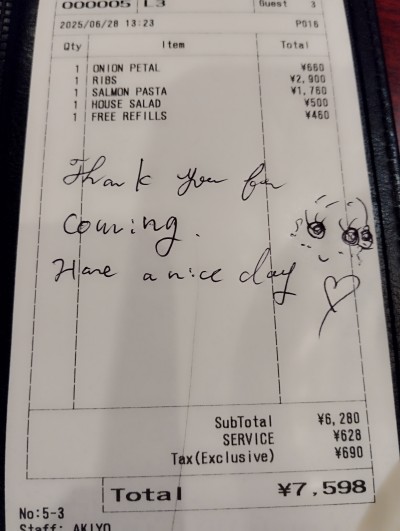 000005 L3 Guest 3
2025/06/28 13:23 P016
Qty Item Total
1 ONION PETAL ¥660
1 RIBS ¥2,900
1 SALMON PASTA ¥1,760
1 HOUSE SALAD ¥500
1 FREE REFILLS ¥460
Thank you for
coming.
Have a nice day
SubTotal ¥6,280
SERVICE ¥628
Tax(Exclusive) ¥690
Total ¥7,598
No:5-3
Staff: AKIYO